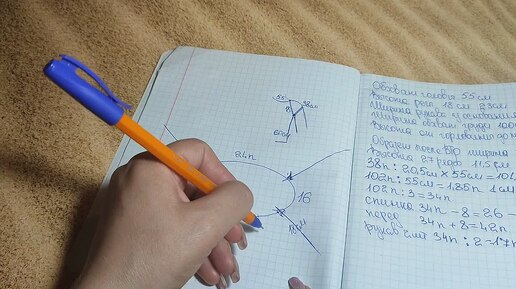 55
38см
8
60см
24п
16
18см
Обхват головы 55см
Высота реглана, 18 см 23см
Ширина рукава у основания
Ширина обхват груди 100
Высота от горловины до
Образец после ВТО ширина
Высота 27 рядов 11,5 см
38п : 20,5см × 55см = 101,
102п : 55см = 1,85п 1 см
102п : 3 = 34п
спинка 34п - 8 = 26 -
перед 34п + 8 = 42п
рукава 34п : 2 = 17п